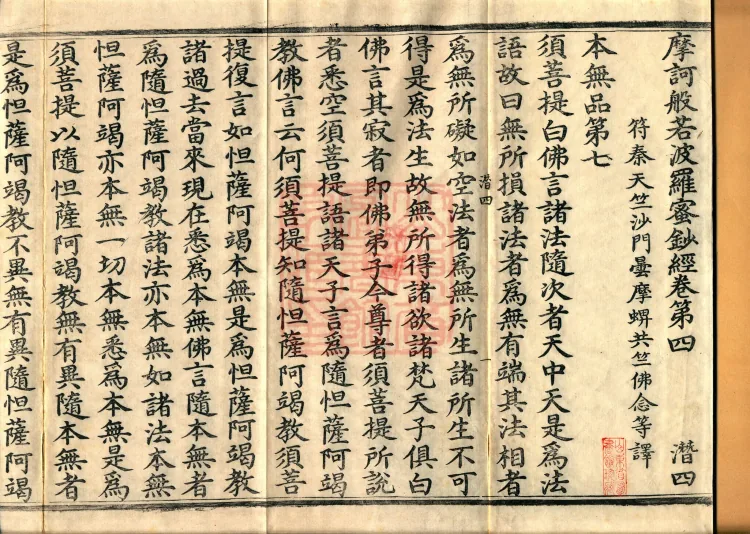 摩訶般若波羅蜜鈔經卷第四 潛四
符秦天竺沙門曇摩蜱共竺佛念等譯
本無品第七
須菩提白佛言諸法隨次者天中天是爲法
語故曰無所損諸法者爲無有端其法相者
潛四
爲無所礙如空法者爲無所生諸所生不可
得是爲法生故無所得諸欲諸梵天子俱白
佛言其寂者即佛弟子今尊者須菩提所說
者悉空須菩提語諸天子言爲隨怛薩阿竭
教佛言云何須菩提知隨怛薩阿竭教須菩
提復言如怛薩阿竭本無是爲怛薩阿竭教
諸過去當來現在悉爲本無佛言隨本無者
爲隨怛薩阿竭教諸法亦本無如諸法本無
怛薩阿竭亦本無一切本無悉爲本無是爲
須菩提以隨怛薩阿竭教無有異隨本無者
是爲怛薩阿竭教不異無有異隨怛薩阿竭